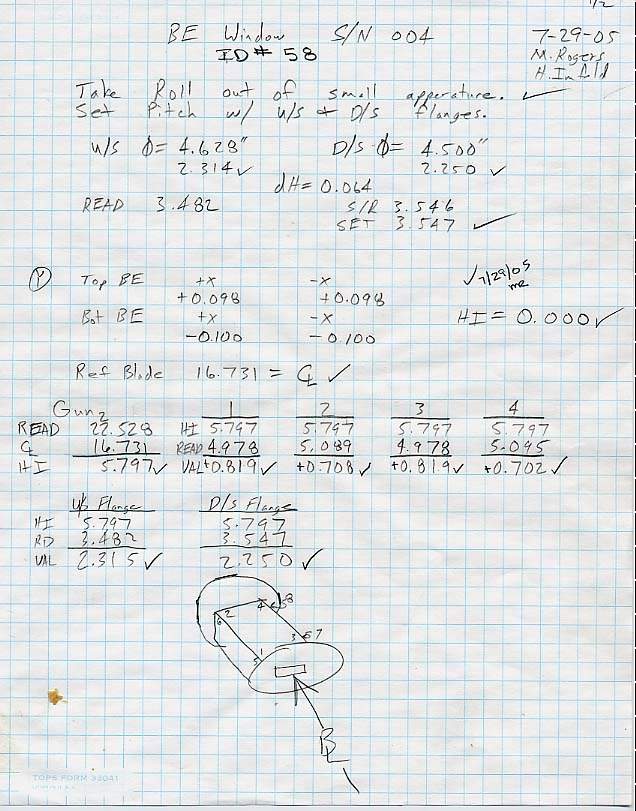 1/2
BE Window S/N 004 7-29-05
ID# 58 M. Rogers
H. Infld
Take Roll out of small apperature. ✓
Set Pitch w/ u/s & D/s flanges.
u/s Φ= 4.628" D/s Φ= 4.500"
2.314 ✓ 2.250 ✓
dH= 0.064
READ 3.482 S/R 3.546
SET 3.547 ✓
Ⓨ Top BE +x -x ✓ 7/29/05
+0.098 +0.098 me
Bot BE +x -x HI = 0.000 ✓
-0.100 -0.100
Ref Blade 16.731 = ℄ ✓
Gun 2 1 2 3 4
READ 22.528 HI 5.797 5.797 5.797 5.797
℄ 16.731 READ 4.978 5.089 4.978 5.095
HI 5.797 ✓ VAL +0.819 ✓ +0.708 ✓ +0.819 ✓ +0.702 ✓
u/s Flange D/s Flange
HI 5.797 5.797
RD 3.482 3.547
VAL 2.315 ✓ 2.250 ✓
6 2 4 8
5 1 3 7
TOPS FORM 33041